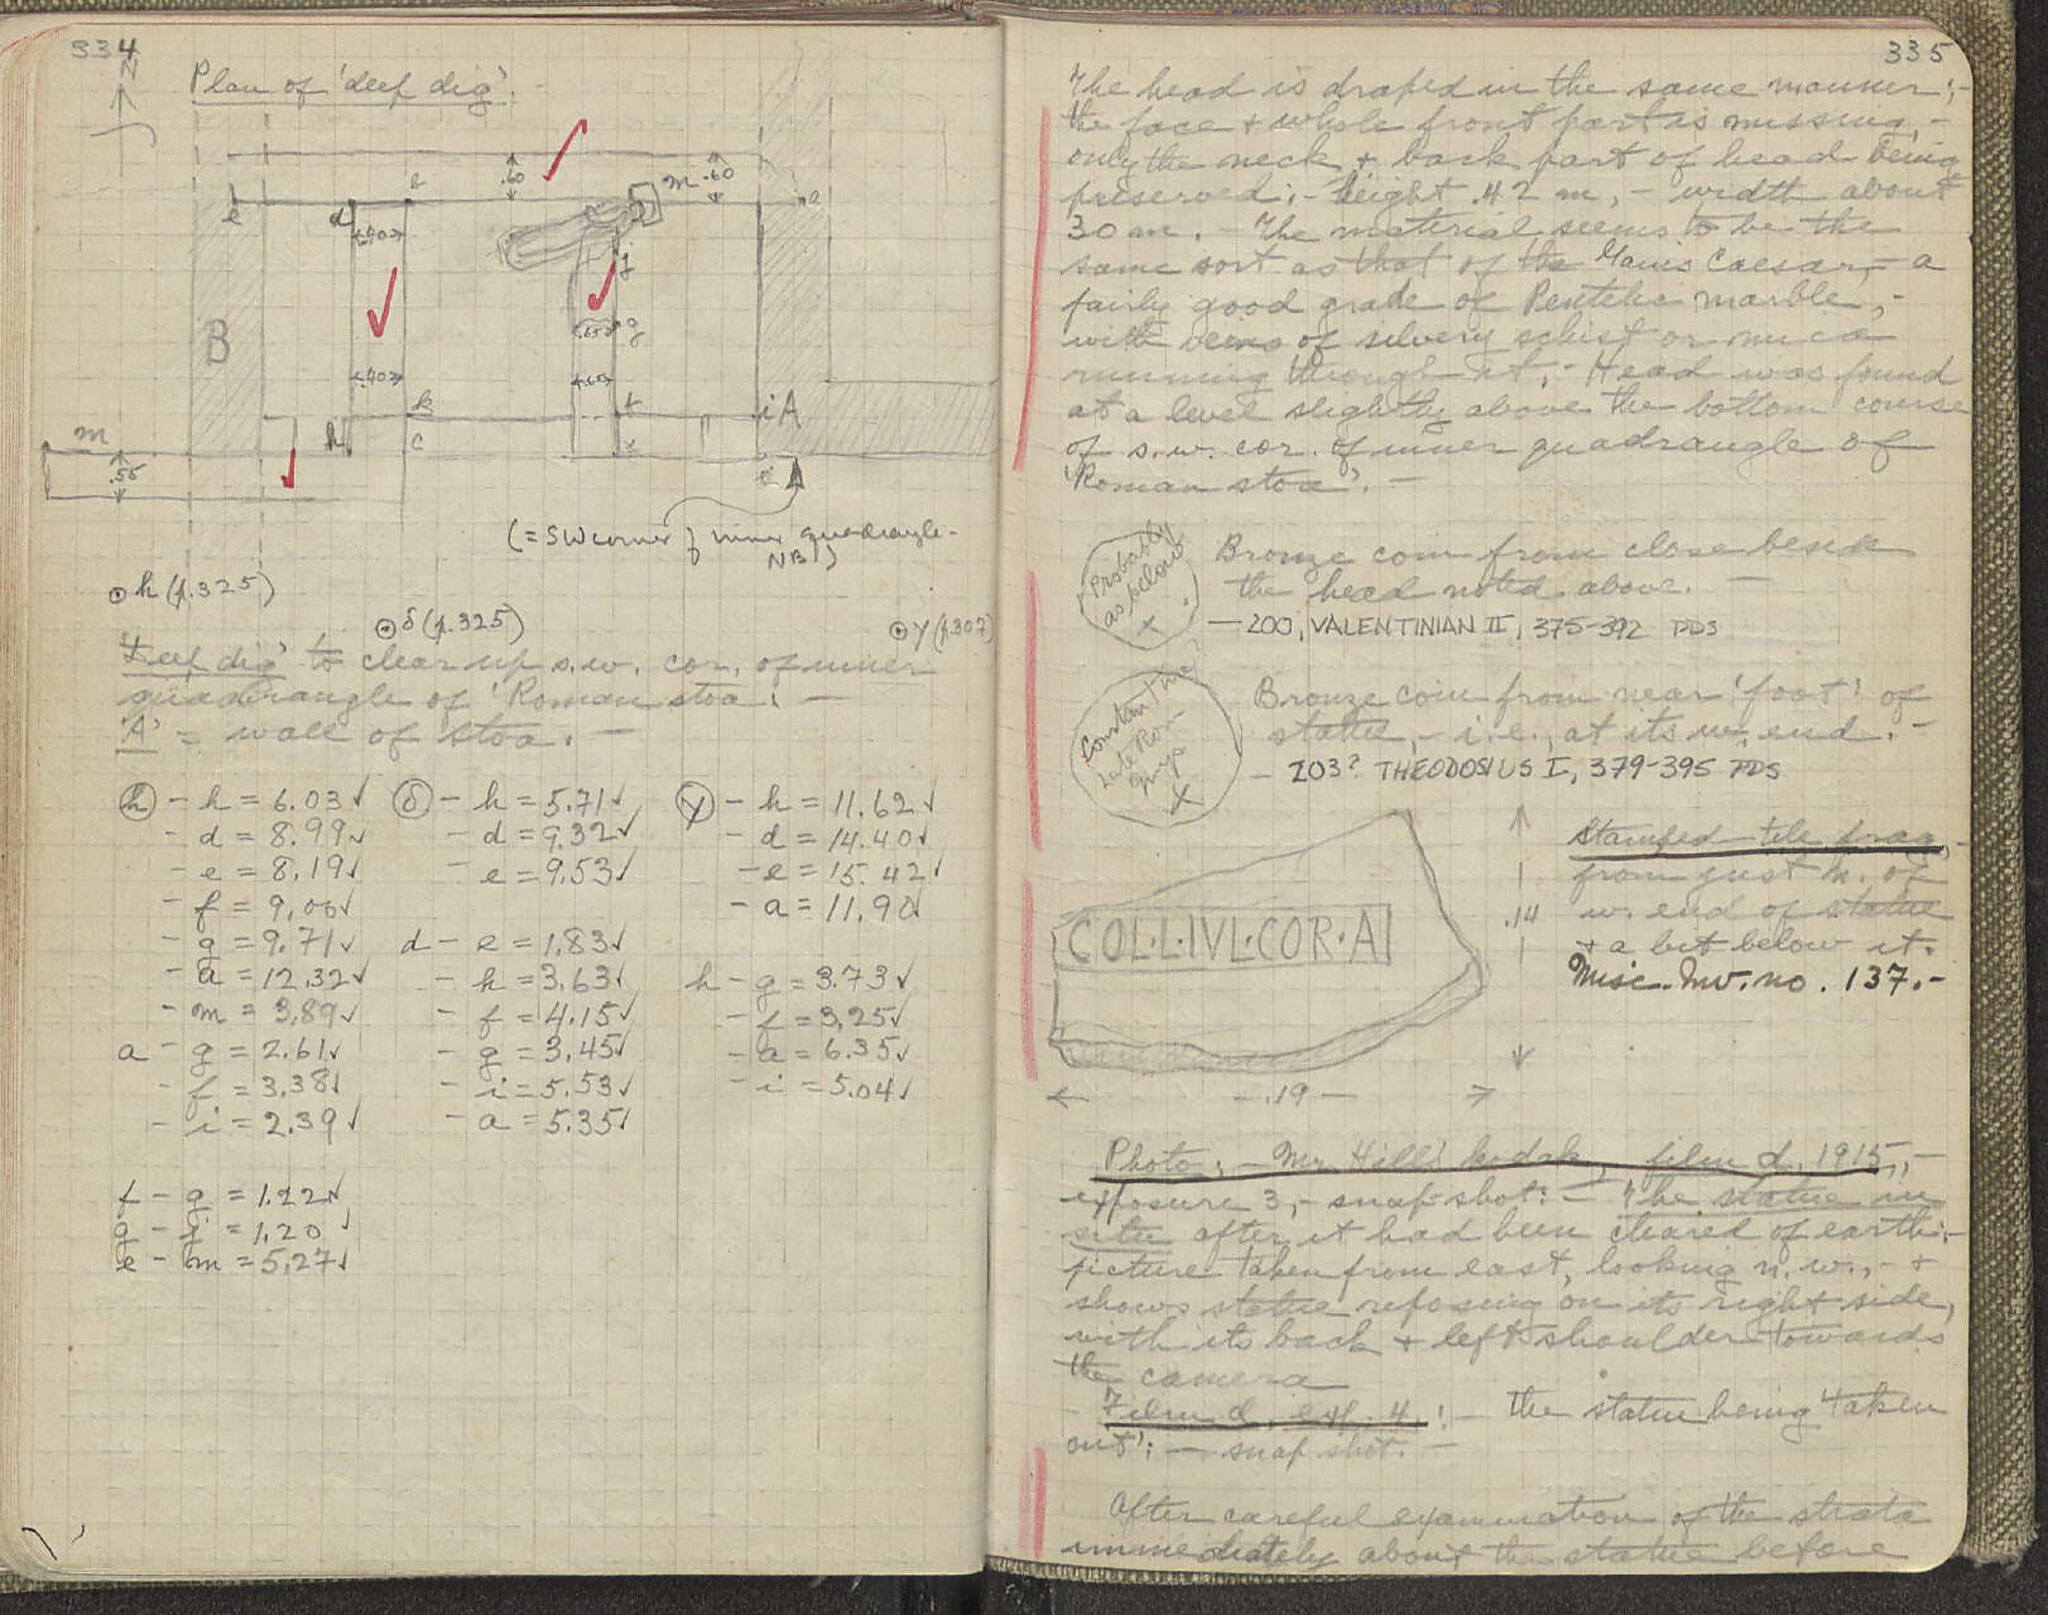 334
N
Plan of 'deep dig'.
e
d
b
.60
m
.60
a
.40
j
B
.65
g
.40
.65
k
f
i A
h
c
x
m
.55
(= SW corner of inner quadrangle -
NB)
h (p.325)
δ (p.325)
γ (p.307)
'Deep dig' to clear up s.w. cor. of inner
quadrangle of 'Roman stoa'. —
'A' = wall of stoa. —
h - h = 6.03 ✓ δ - h = 5.71 ✓ γ - h = 11.62 ✓
- d = 8.99 ✓ - d = 9.32 ✓ - d = 14.40 ✓
- e = 8.19 ✓ - e = 9.53 ✓ - e = 15.42 ✓
- f = 9.00 ✓ - a = 11.90 ✓
- g = 9.71 ✓ d - e = 1.83 ✓
- a = 12.32 ✓ - h = 3.63 ✓ h - g = 3.73 ✓
- m = 3.89 ✓ - f = 4.15 ✓ - f = 3.25 ✓
a - g = 2.61 ✓ - g = 3.45 ✓ - a = 6.35 ✓
- f = 3.38 ✓ - i = 5.53 ✓ - i = 5.04 ✓
- i = 2.39 ✓ - a = 5.35 ✓
f - g = 1.22 ✓
g - j = 1.20 ✓
e - m = 5.27 ✓
335
The head is draped in the same manner; -
the face + whole front part is missing, -
only the neck + back part of head being
preserved; - height .42 m, - width about
30 m. - The material seems to be the
same sort as that of the Gaius Caesar, - a
fairly good grade of Pentelic marble, -
with veins of silvery schist or mica
running through it, - Head was found
at a level slightly above the bottom course
of s.w. cor. of inner quadrangle of
'Roman stoa'. —
Probably
as below
x
Bronze coin from close beside
the head noted above. —
— 200, VALENTINIAN II, 375-392 PDS
Constantine?
Late Rom
Emps
X
Bronze coin from near 'foot' of
statue, - i.e., at its w. end. -
- 203? THEODOSIUS I, 379-395 PDS
COL·L·IVL·COR·A
.14
.19
Stamped tile frag. -
from just n. of
w. end of statue
+ a bit below it.
Misc. Inv. no. 137. -
Photo; - Mr Hill's kodak, film d, 1915, -
exposure 3, - snap-shot: - The statue in
situ after it had been cleared of earth; -
picture taken from east, looking n.w., - +
shows statue reposing on its right side,
with its back + left shoulder towards
the camera
- Film d, exp. 4: - the statue being 'taken
out'; — snap shot. —
After careful examination of the strata
immediately about the statue before